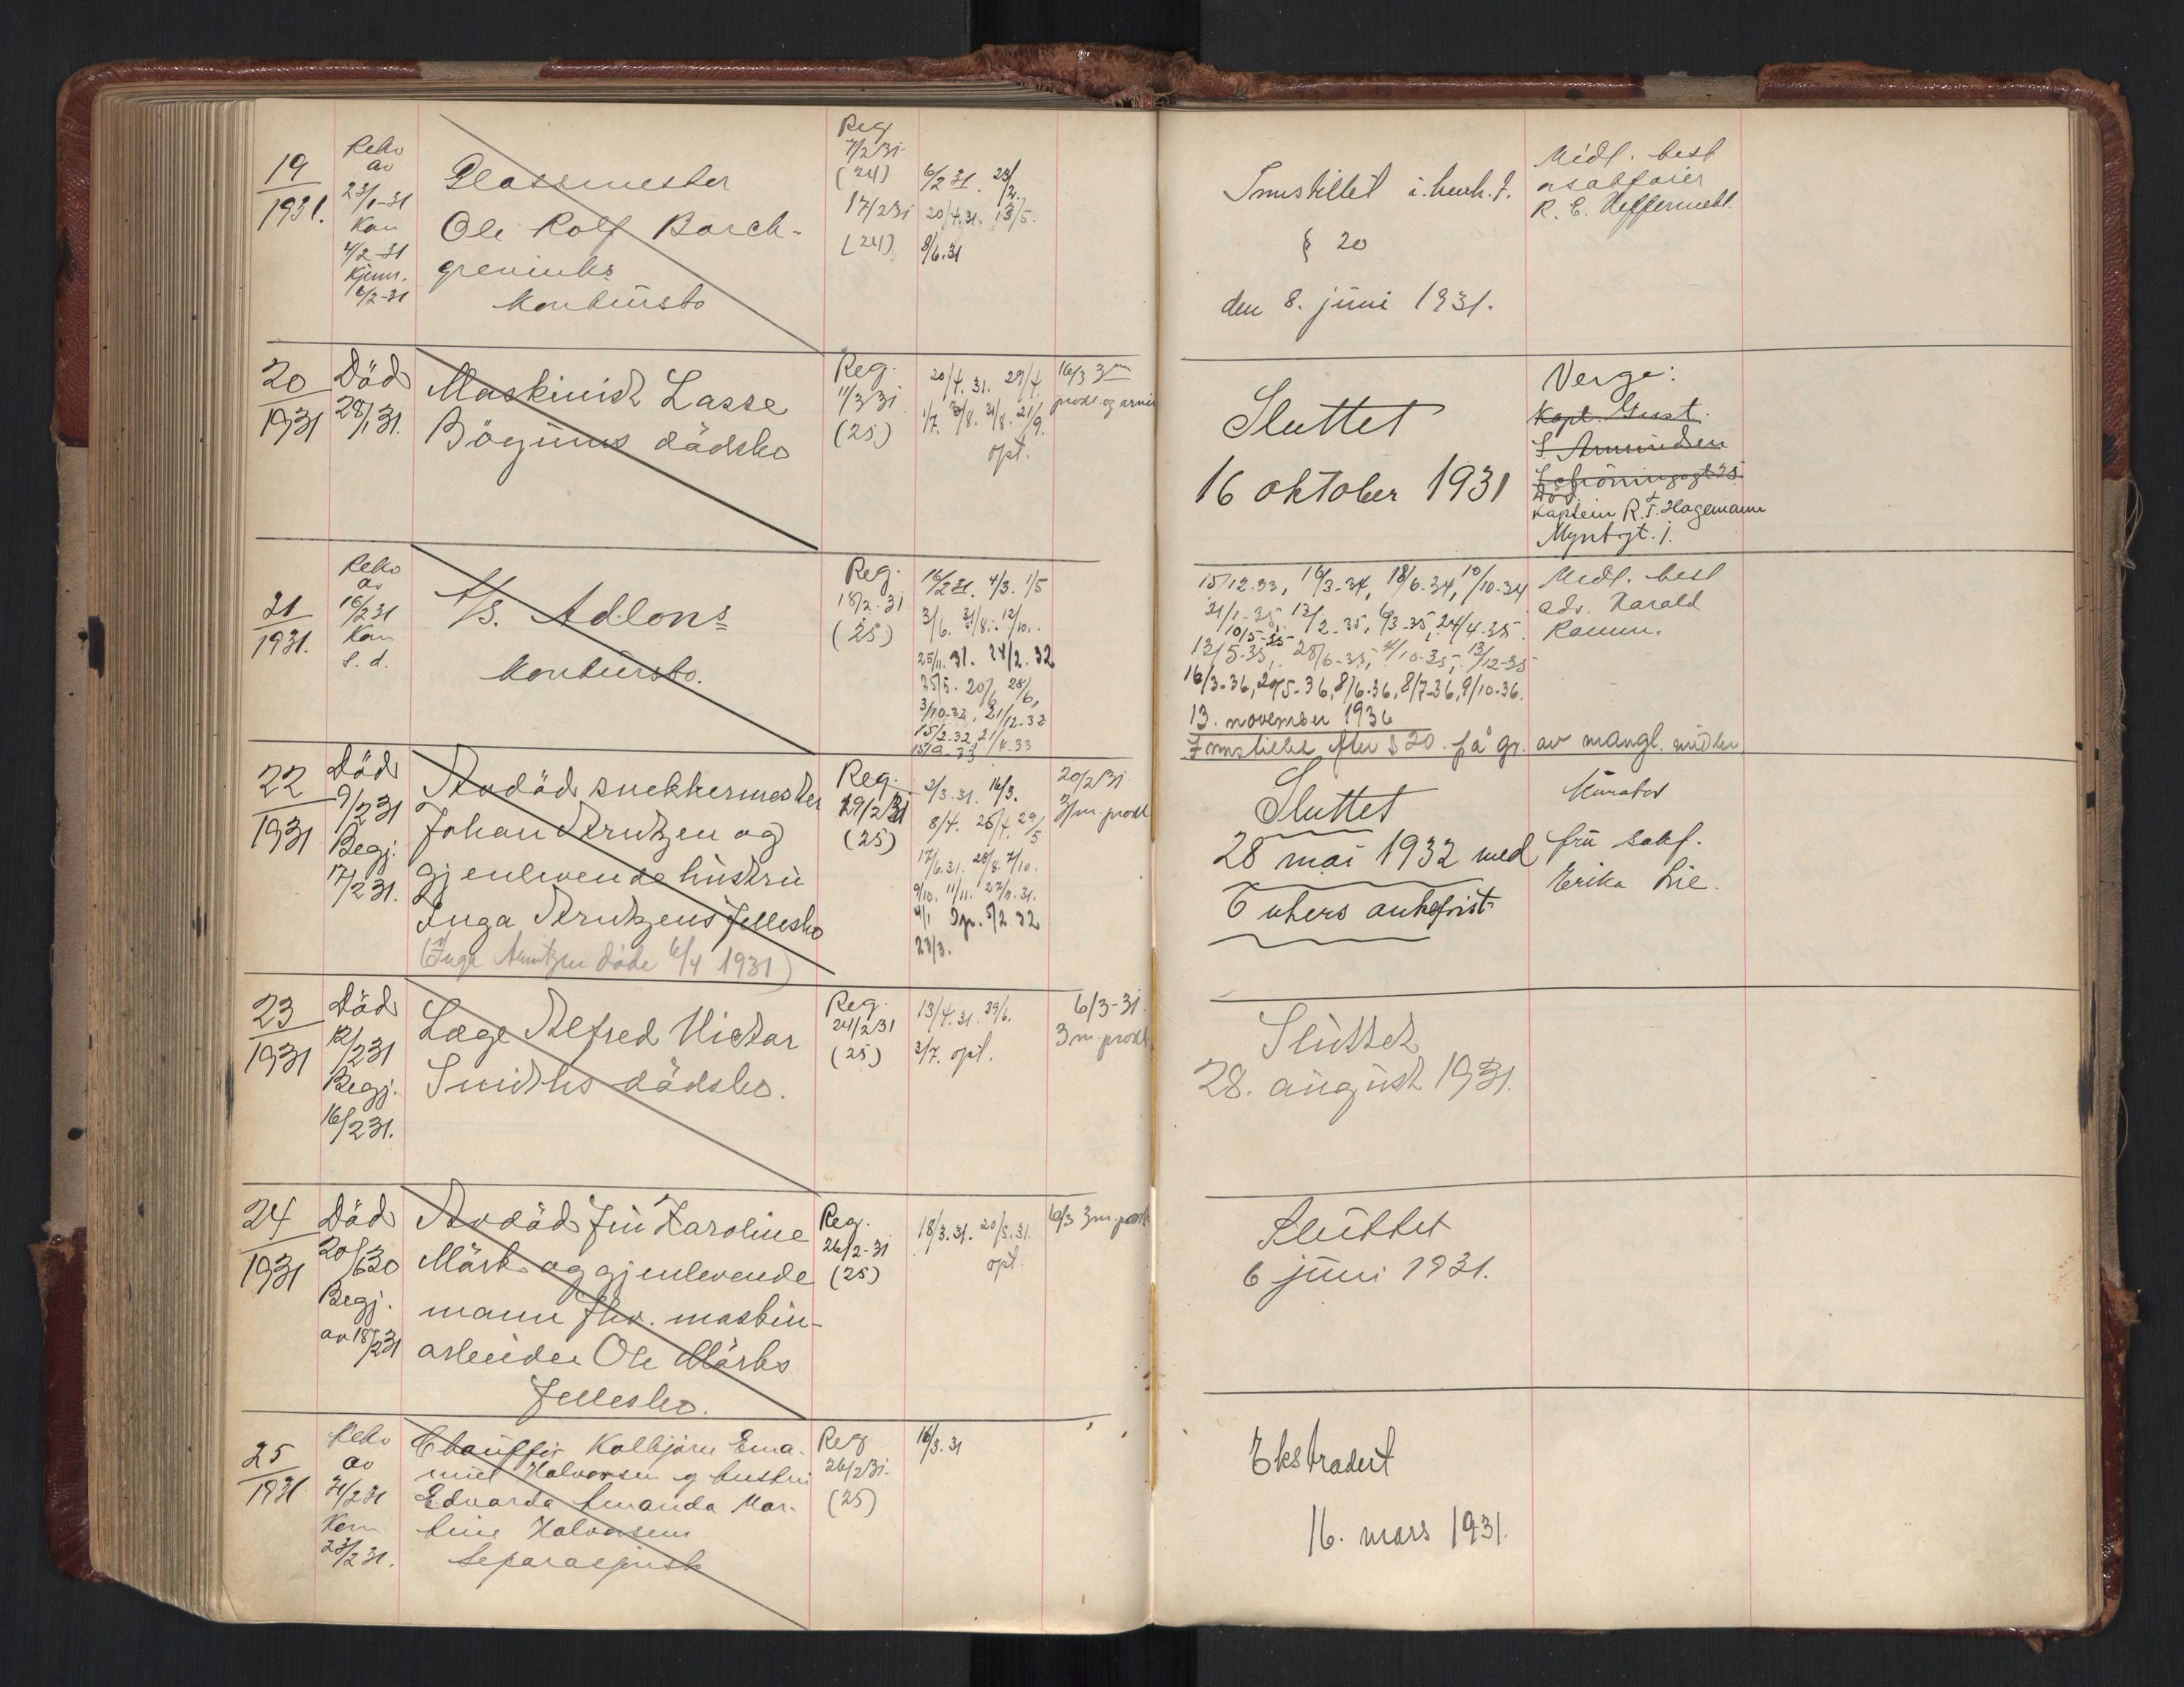 19
1931.
Reko
av
23/1-31
Kon
4/2-31
Kjenn.
6/2-31
Glassmester
Ole Rolf Borch-
grevinks
konkursbo
Reg
7/2 31
(24)
17/2 31
(24)
6/2 31. 23/2.
20/4.31. 13/5.
8/6.31
Innstillet i. henh. t.
§ 20
den 8. juni 1931.
Midl. best
R. E. Heffermehl
20
1931
Död
28/1 31.
Maskinist Lasse
Bögums dödsbo
Reg.
11/3 31
(25)
20/4.31. 29/4
1/7. 21/9.
opt.
16/3 3m
prokl. og arvin
Sluttet
16 oktober 1931
Verge:
Kapt. Gust.
S Amundsen
Schöningsgt 25
Död
Kaptein R. T. Hagemann
Myntgt. 1.
21
1931.
Reko
av
16/2 31
Kon
s. d.
A/S. Adlons
konkursbo.
Reg.
18/2-31
(25)
16/2 31. 4/3. 1/5
3/6. 31/8. 12/10.
25/11. 31. 24/2. 32
25/5. 20/6, 28/6,
3/10-32, 21/12-32
15/2-33, 21/4.33
15/9-33
15/12.33, 16/3-34, 18/6-34, 10/10-34
21/1-35, 12/2-35, 6/3-35, 24/4-35.
10/5-35
13/5-35, 28/6-35, 4/10-35, 13/12-35
16/3-36, 20/5-36, 8/6-36, 8/7-36, 9/10-36.
13. november 1936
Innstillet efter § 20. på gr. av mangl. midler
Midl. best
adv. Harald
Ramm.
22
1931
Död
9/2 31
Begj.
17/2 31.
Avdöd snekkermester
Johan Arntzen og
gjenlevende hustru
Inga Arntzens fellesbo
(Inga Arntzen döde 6/4 1931)
Reg.
19/2 31
(25)
2/3.31. 16/3.
8/4. 25/4. 29/5
17/6.31. 28/8. 7/10.
9/10. 11/11. 27/11.31.
4/1 Op. 5/2 32
23/3.
20/2 31
3/m. prokl
Sluttet
28 mai 1932 med
6 ukers ankefrist
Kurator
fru sakf.
Erika Lie.
23
1931
Död
12/2 31
Begj.
16/2 31.
Læge Alfred Victor
Smiths dödsbo.
Reg.
24/2 31
(25)
13/4.31. 29/6.
3/7. opt.
6/3-31.
3 m. prokl
Sluttet
28. august 1931.
24
1931
Död
20/6 30
Begj.
av 18/2 31
Avdöd fru Karoline
Mörk og gjenlevende
mann fhv. maskin-
arbeider Ole Mörks
fellesbo.
Reg.
26/2-31
(25)
18/3.31. 20/5.31.
opt.
6/3 3m. prokl
Sluttet
6 juni 1931.
25
1931
Reko
av
21/2 31
Kom
23/2 31.
Chauffør Kolbjørn Ema-
nuel Halvorsen og hustru
Edvarda Amanda Mar-
tine Halvorsens
separasjonsbo
Reg
26/2 31.
(25)
16/3.31
Ekstradert
16. mars 1931.